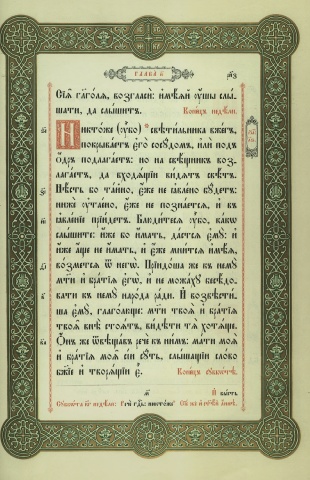 ГЛАВА й҃
Сїѧ̑ гл҃голѧ, возгласѝ: имѣ́ѧй ѹ҆́шы слы́-
шати, да слы́шитъ. Коне́цъ недѣ́ли.
Никто́же (ѹ҆́бѡ) свѣти́льника вже́гъ,
покрыва́етъ є҆го̀ сосу́домъ, и҆лѝ под̾
Ѻ҆́дръ подлага́етъ: но на свѣ́щникъ воз-
лага́етъ, да входѧ́щїи ви́дѧтъ свѣ́тъ.
Нѣ́сть бо та́йно, є҆́же не ꙗ҆вле́но бу́детъ:
нижѐ ѹ҆тае́но, є҆́же не позна́етсѧ, и҆ въ
ꙗ҆вле́нїе прїи́детъ. Блюди́тесѧ ѹ҆̀бо, ка́кѡ
слы́шите: и҆́же бо и҆́мать, да́стсѧ є҆мꙋ̀: и҆
и҆́же а҆́ще не и҆́мать, и҆ є҆́же мни́тсѧ и҆мѣ́ѧ,
во́зметсѧ ѿ негѡ̀. Прїидо́ша же къ немꙋ̀
мт҃и и҆ бра́тїѧ є҆гѡ̀, и҆ не можа́хꙋ бесѣ́до-
вати къ немꙋ̀ наро́да ра́ди. И҆ возвѣсти́-
ша є҆мꙋ̀, глаго́люще: мт҃и твоѧ̀ и҆ бра́тїѧ
твоѧ̀ внѣ̀ стоѧ́тъ, ви́дѣти тѧ̀ хотѧ́ще.
Ѻ҆́нъ же ѿвѣща́въ речѐ къ ни̑мъ: ма́ти моѧ̀
и҆ бра́тїѧ моѧ̀ сі́и сꙋ́ть, слы́шащїи сло́во
бж҃їе и҆ творѧ́щїи є҆̀. Коне́цъ сꙋббѡ́тѣ.